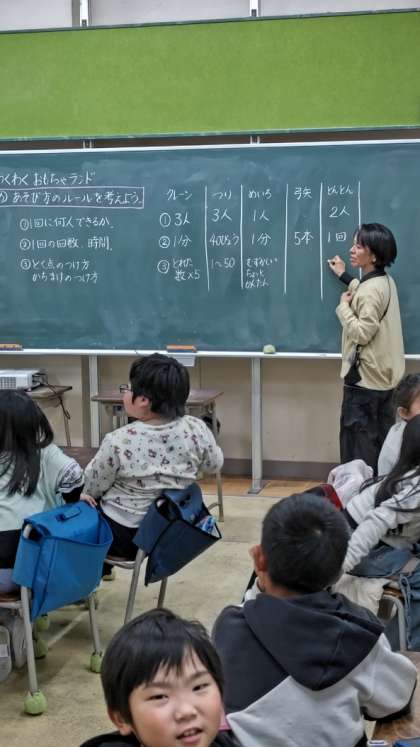 わくわく おもちゃランド
あそび方のルールを考えよう。
①1回に何人できるか。
②1回の回数、時間。
③とく点のつけ方
かちまけのつけ方
クレーン つり めいろ 弓矢 とんとん
①3人 3人 1人 2人
②1分 40びょう 1分 5本 1回
③とれた数×5 1〜50 むずかしい ちょっと かんたん